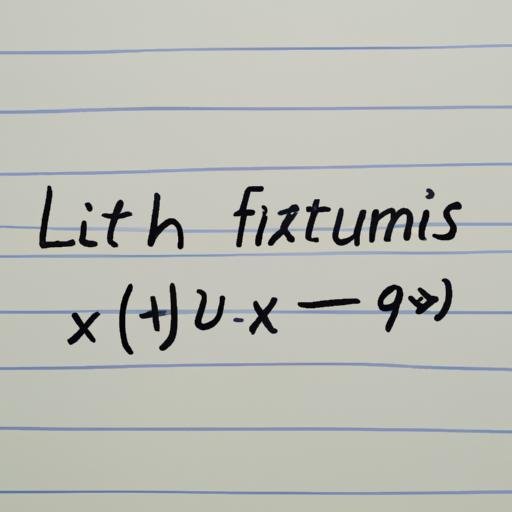 Lith fiztumis
x (+) U - x — 9»)